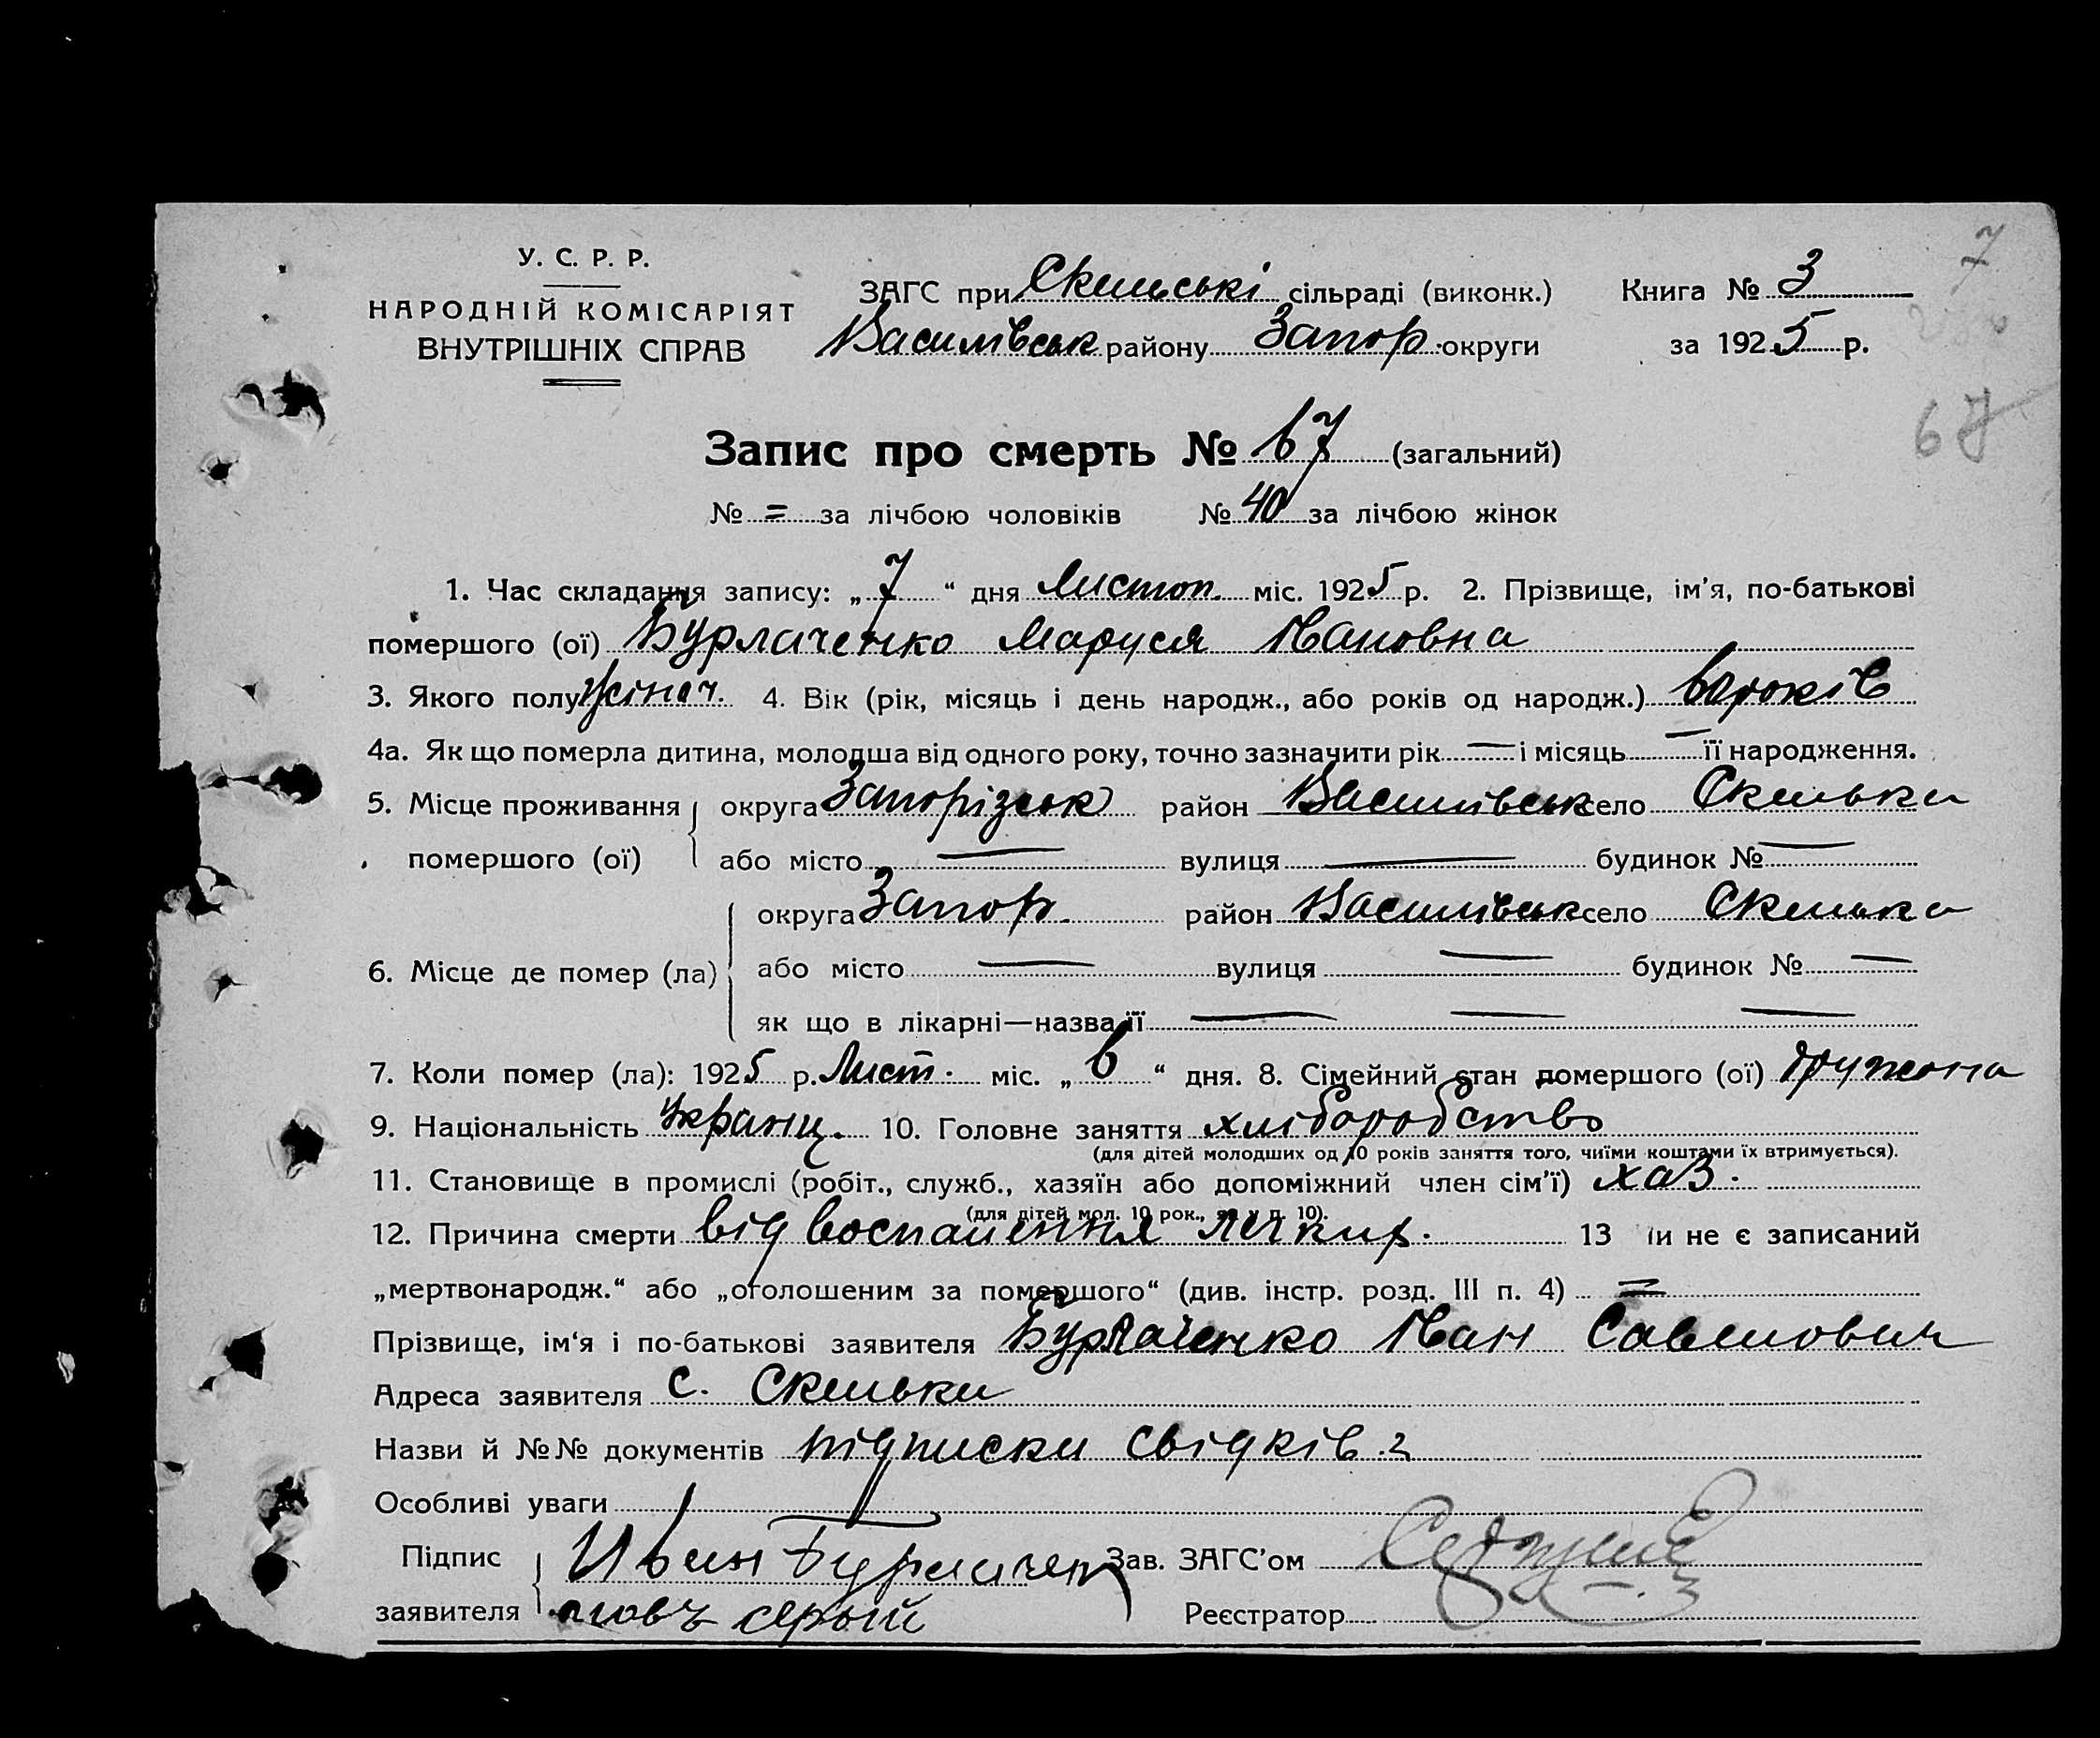 7
У. С. Р. Р.
НАРОДНІЙ КОМІСАРІЯТ
ВНУТРІШНІХ СПРАВ
ЗАГС при Скельські сільраді (виконк.) Книга № 3
Василівськ району Запор. округи за 1925 р.
67
Запис про смерть № 67 (загальний)
№ = за лічбою чоловіків № 40 за лічбою жінок
1. Час складання запису: „ 7 “ дня Листоп. міс. 1925 р. 2. Прізвище, ім’я, по-батькові
помершого (ої) Бурлаченко Маруся Ивановна
3. Якого полу жіноч. 4. Вік (рік, місяць і день народж., або років од народж.) 60 років
4а. Як що померла дитина, молодша від одного року, точно зазначити рік — і місяць — її народження.
5. Місце проживання округа Запорізськ район Василівськ село Скельки
помершого (ої) або місто — вулиця — будинок № —
округа Запор. район Василівськ село Скельки
6. Місце де помер (ла) або місто — вулиця — будинок № —
як що в лікарні—назва її — — —
7. Коли помер (ла): 1925 р. Лист. міс. „ 6 “ дня. 8. Сімейний стан помершого (ої) дружона
9. Національність Украиц. 10. Головне заняття хліборобство
(для дітей молодших од 10 років заняття того, чиїми коштами їх втримується).
11. Становище в промислі (робіт., служб., хазяїн або допоміжний член сім’ї) хаз.
(для дітей мол. 10 рок., як у п. 10).
12. Причина смерти від воспаления легких. 13 чи не є записаний
„мертвонародж.“ або „оголошеним за помершого“ (див. інстр. розд. III п. 4) =
Прізвище, ім‘я і по-батькові заявителя Бурлаченко Иван Савелович
Адреса заявителя с. Скельки
Назви й №№ документів підписки свідків 2
Особливі уваги
Підпис Иван Бурлачен Зав. ЗАГС’ом
заявителя серый Реєстратор